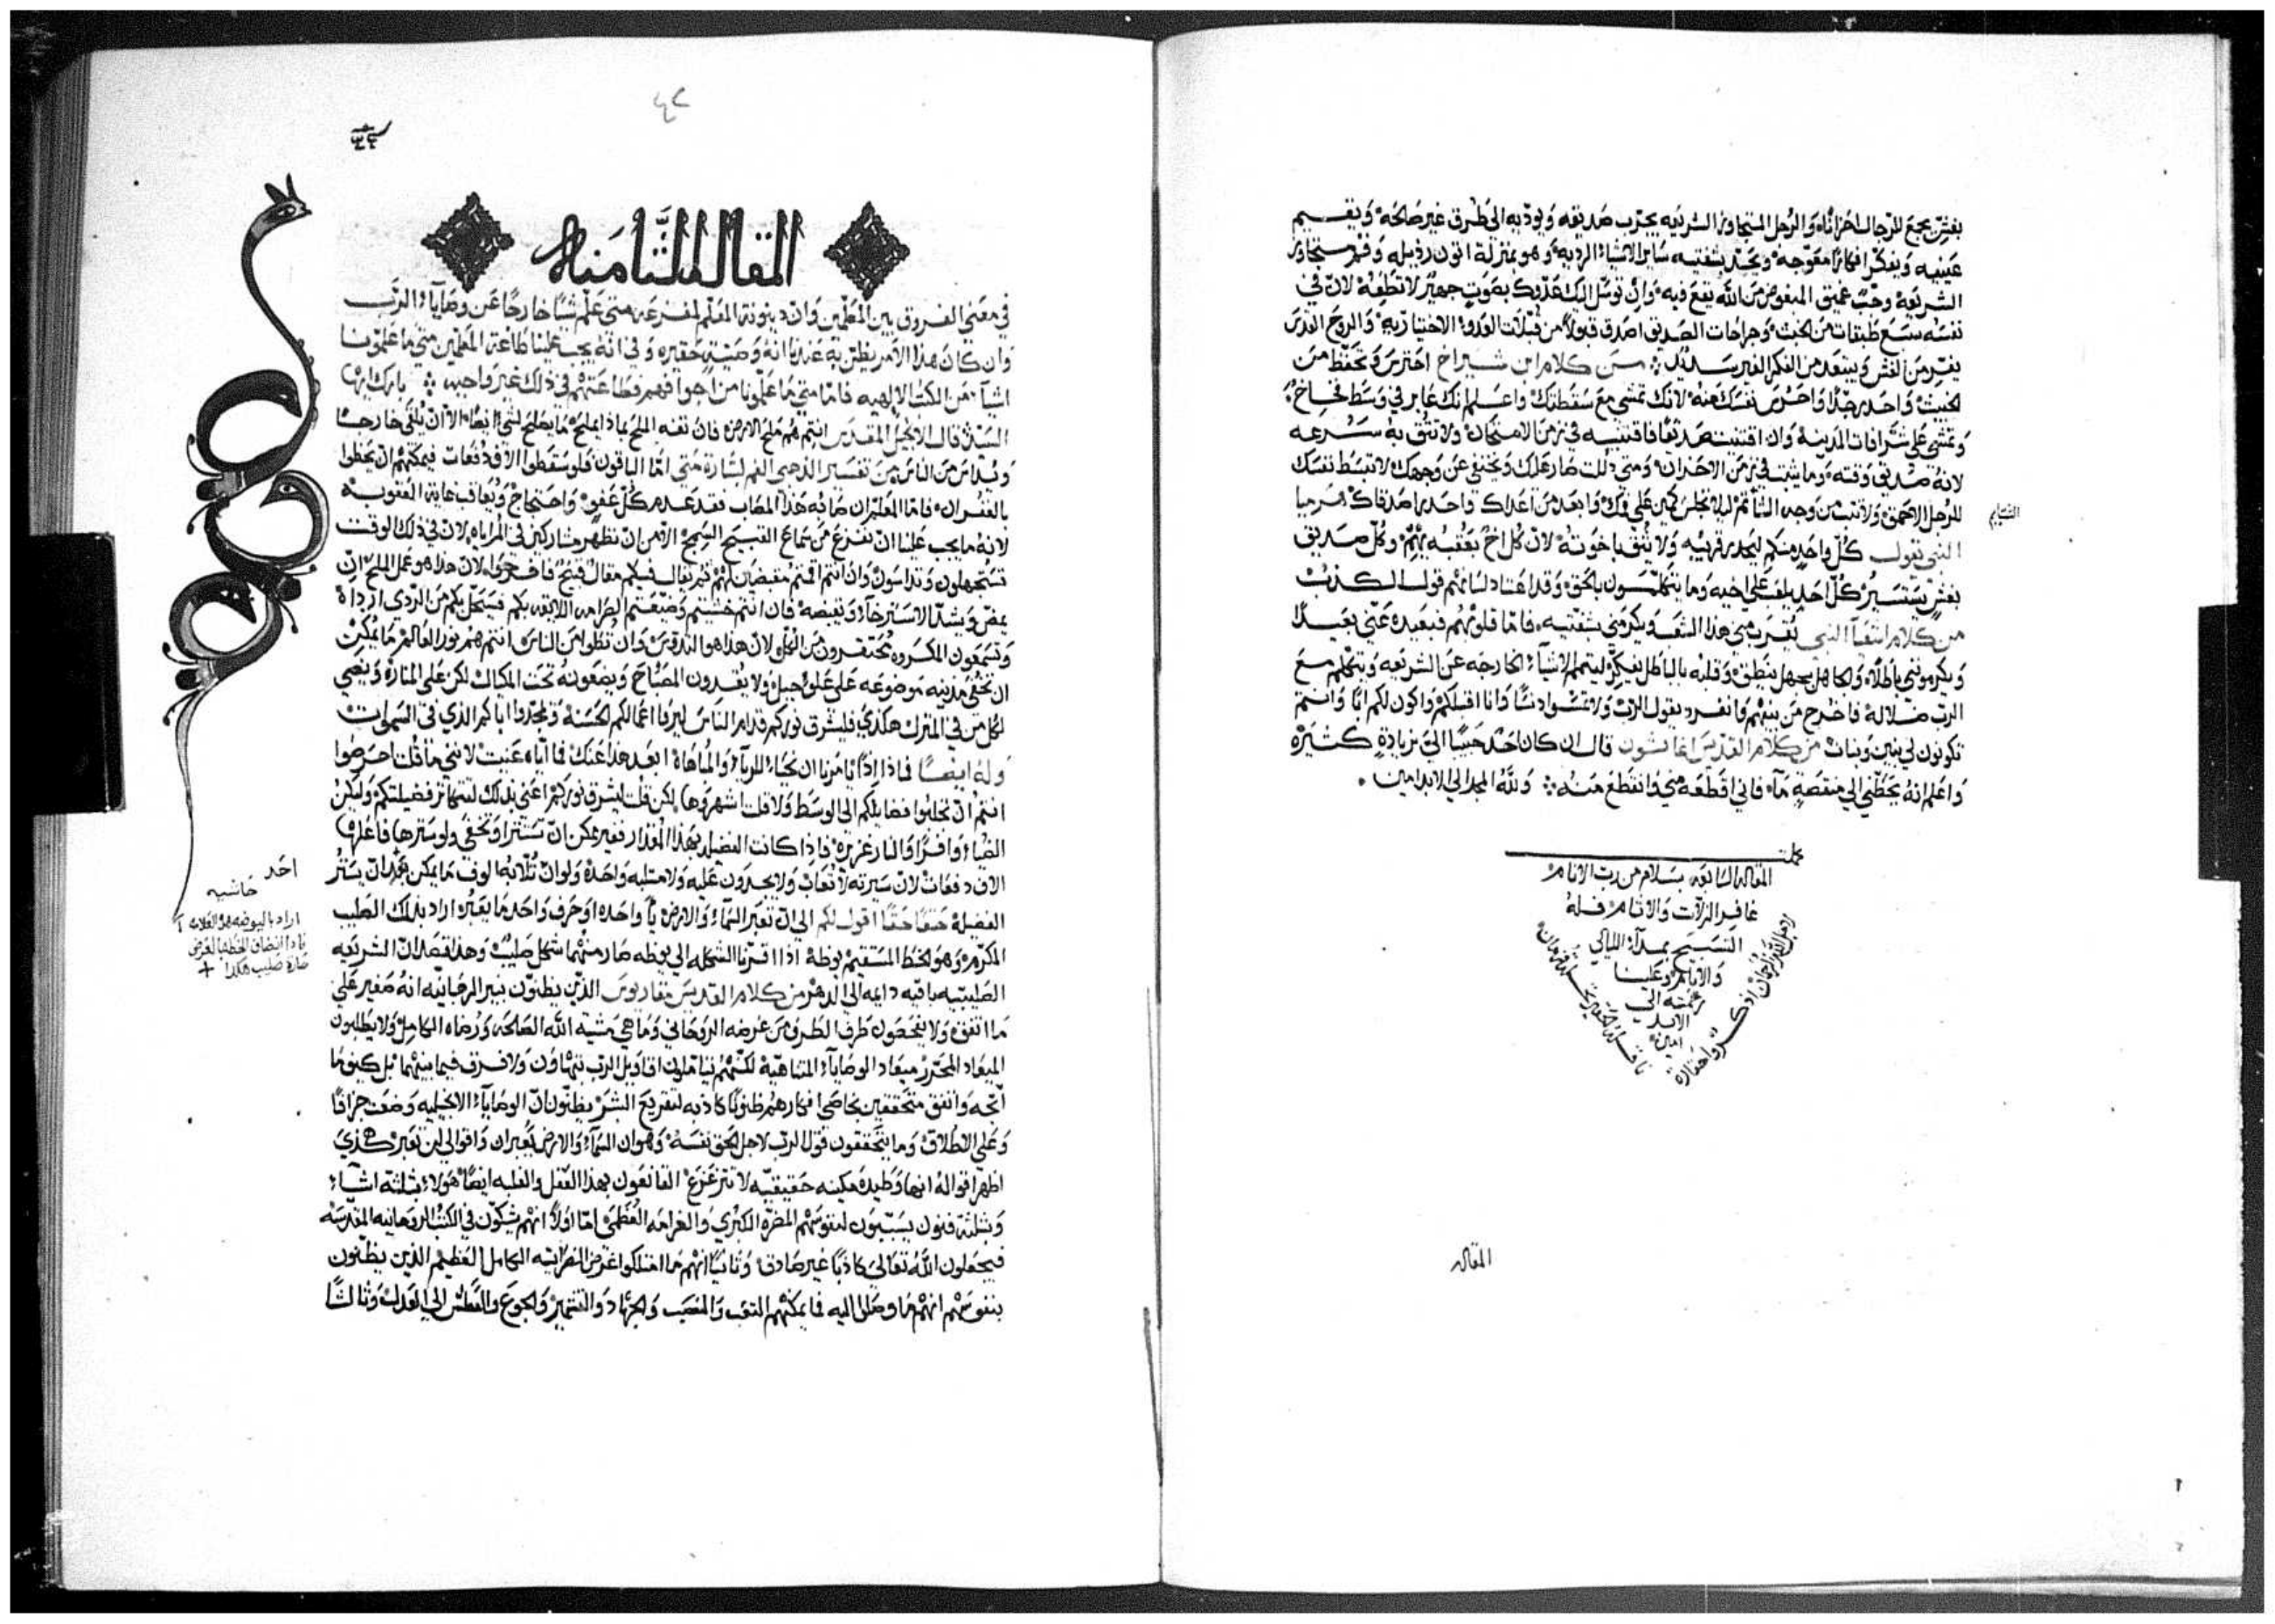 بغش يجمع للرجال احزانًا والرجل المتجاوز الشريعه يجرب صديقه ويوديه الى طرق غير صالحه ويقيم
عينيه ويفكر افكارًا معوجه ويحد بشفتيه ساير الاشياء الرديه وهو بمنزلة اتون رذيله وفم متجاوز
الشريعه وجب عميق المبغوض من الله يقع فيه وان توسل اليك عدوك بصوت جهير لا تطعه لان في
نفسه سبع طبقات من الخبث وجراحات الصديق اصدق قبولًا من قبلات العدو الاختياريه والروح القدس
يفر من الغش ويبتعد من الفكر الغير سديد من كلام ابن شيراخ احترس وتحفظ من
الخبيث واحذر جدًا واحرس نفسك منه لانك تمشي مع سقطتك واعلم انك عابر في وسط فخاخ
وتمشي على شرافات المدينة وان اقتنيت صديقًا فاقتنيه في زمن الامتحان ولا تثق به سرعه
لانه صديق وقته وما يثبت في زمن الاحزان ومتى ذللت صار عليك ويختفي عن وجهك لا تبسط نفسك
للرجل الاحمق ولا تثبت من وجه الشاتم ليلا يجلس كمين على فمك وابعد من اعداك واحذر اصدقاك هرميا
الشتايم
النبي يقول كل واحد منكم ليحذر قريبه ولا تثق باخوته لان كل اخ بعقبه يهم وكل صديق
بغش يستسير كل احد يلعب على اخيه وما يتكلمون بالحق وقد اعتاد لسانهم قول الكذب
من كلام اشعيا النبي يقترب مني هذا الشعب ويكرمني بشفتيه فاما قلوبهم فبعيده عني بعيدًا
ويكرموني باطلًا والجاهل بجهل ينطق وقلبه بالباطل يفكر ليتمم الاشياء الخارجه عن الشريعه ويتكلم مع
الرب ضلالة فاخرج من بينهم وانفرد يقول الرب ولا تمسوا دنسًا وانا اقبلكم واكون لكم ابًا وانتم
تكونون لي بنين وبنات من كلام القديس اغاثون قال ان كان احد حبيبًا الي بزيادة كثيره
واعلم انه يحطني الى منقصة ما فاني اقطعه مني وانقطع منه ولله المجد الى الابد امين
كملت
المقاله السابعه بسلام من رب الانام
غافر الزلات والاثام فله
التسبيح بمدا الليالي
والايام وعلينا
رحمته الى
الابد
امين
المقاله
المقالة الثامنه
في معنى الفروق بين المعلمين وان دينونة المعلم لمفزعه متى علم شيا خارجًا عن وصايا الرب
وان كان هذا الامر يظن به عندنا انه وصية حقيره وفي انه يجب علينا طاعة المعلمين متى ما علمونا
اشيا من الكتب الالهيه فاما متى ما علمونا من اجوافهم فطاعتهم في ذلك غير واجبه بارك ايها
السيد قال الانجيل المقدس انتم هم ملح الارض فان تفه الملح بماذا يملح ما يصلح لشي ايضًا الا ان يلقى خارجًا
ويداس من الناس من تفسير الذهبي الفم لبشارة متى اما الباقون فلو سقطوا الاف دفعات فيمكنهم ان يحظوا
بالغفران فاما المعلم ان صابه هذا المصاب فقد عدم كل عفو واحتجاج ويعاقب غاية العقوبه
لانه ما يجب علينا ان نفزع من سماع القبيح السمج الا من ان نظهر مشاركين في المراياه لان في ذلك الوقت
تستجهلون وتداسون وان انتم اقمتم مقبضين لهم ثم يقال فيكم مقال قبيح فافرحوا لان هذا هو عمل الملح ان
يمض ويشد الاسترخاء ويقبضه فان انتم خشيتم وضيعتم الصرامه اللايقه بكم فسيحل بكم من الردى ارداه
وتسمعون المكروه محتقرون من الكل لان هذا هو التداس وان توطوا من الناس انتم هم نور العالم ما يمكن
ان تخفى مدينه موضوعه على علو جبل ولا يوقدون المصباح ويضعونه تحت المكيال لكن على المناره ويضي
لكل من في المنزل هكذى فليشرق نوركم قدام الناس ليروا اعمالكم الحسنة ويمجدوا اباكم الذي في السموات
وله ايضًا فماذا اذًا يامرنا ان نحيا للريا والمباهاة ابعد هذا عنك فما اياه عنيت لانني ما قلت احرصوا
انتم ان تجلبوا فضايلكم الى الوسط ولا قلت اشهروها لكن قلت ليشرق نوركم اعني بذلك لتنهاز فضيلتكم وليكن
الضياء وافرًا والنار غزيره فاذا كانت الفضيله بهذا المقدار فغير ممكن ان تستتر وتخفى ولو سترها فاعلها
الاف دفعات لان سيرته لا تعاب ولا يجدون عليه ولا مثلبه واحدة ولو ان ثلابه الوف ما يمكن بجد ان يستر
الفضيلة حقًا حقًا اقول لكم الى ان تعبر السماء والارض يا واحده او حرف واحد ما يعبر اراد بذلك الصليب
المكرم وهو الخط المستقيم يوطه اذا اقرنا الشكله الى يوطه صار منهما شكل صليب وهذا قصد ان الشريعه
الصليبيه باقيه دايمه الى الدهر من كلام القديس مقاريوس الذين يظنون بنير الرهبانيه انه صغير على
ما اتفق ولا يفحصون طرف الطرق من غرضه الروحاني وما هي مشية الله الصالحه ورضاه الكامل ولا يطلبون
الميعاد المحرز ميعاد الوصايا المتناهية لكنهم يتاملون اقاويل الرب بتهاون ولا فرق فيما بينهم بل كيفما
اتجه واتفق متحققين بخاصي افكارهم ظنونًا كاذبه لتفريج الشر يظنون ان الوصايا الانجيليه وضعت جزافًا
وعلى الاطلاق وما يتحققون قول الرب لاجل الحق نفسه وهو ان السماء والارض يعبران واقوالي لن تعبر هكذى
اظهر اقواله انها وطيده مكينه حقيقيه لا تتزعزع القانعون بهذا العقل والغلبه ايضًا هولاء بثلثة اشياء
وبثلثة فنون يسببون لنفوسهم المضره الكبرى والغرامه العظمى اما اولًا انهم يشكون في الكتب الروحانيه المقدسه
فيجعلون الله تعالى كاذبًا غير صادق وثانيًا انهم ما امتلكوا غرض النصرانيه الكامل العظيم الذين يظنون
بنفوسهم انهم ما وصلوا اليه فما يمكنهم التعب والنصب والجهاد والتشمير والجوع والعطش الى العدل وثالثًا
احد
حاشيه
اراد باليوطه هو العلامه ا
صاره صليب هكذا +